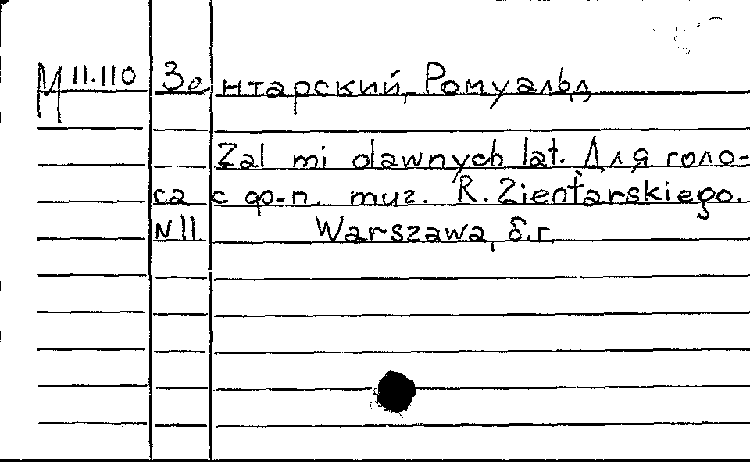 М 11.110 Зентарский, Ромуальд
Zal mi dawnych lat. Для голо-
са с фо-п. muz. R. Zientarskiego.
N 11 Warszawa, б.г.